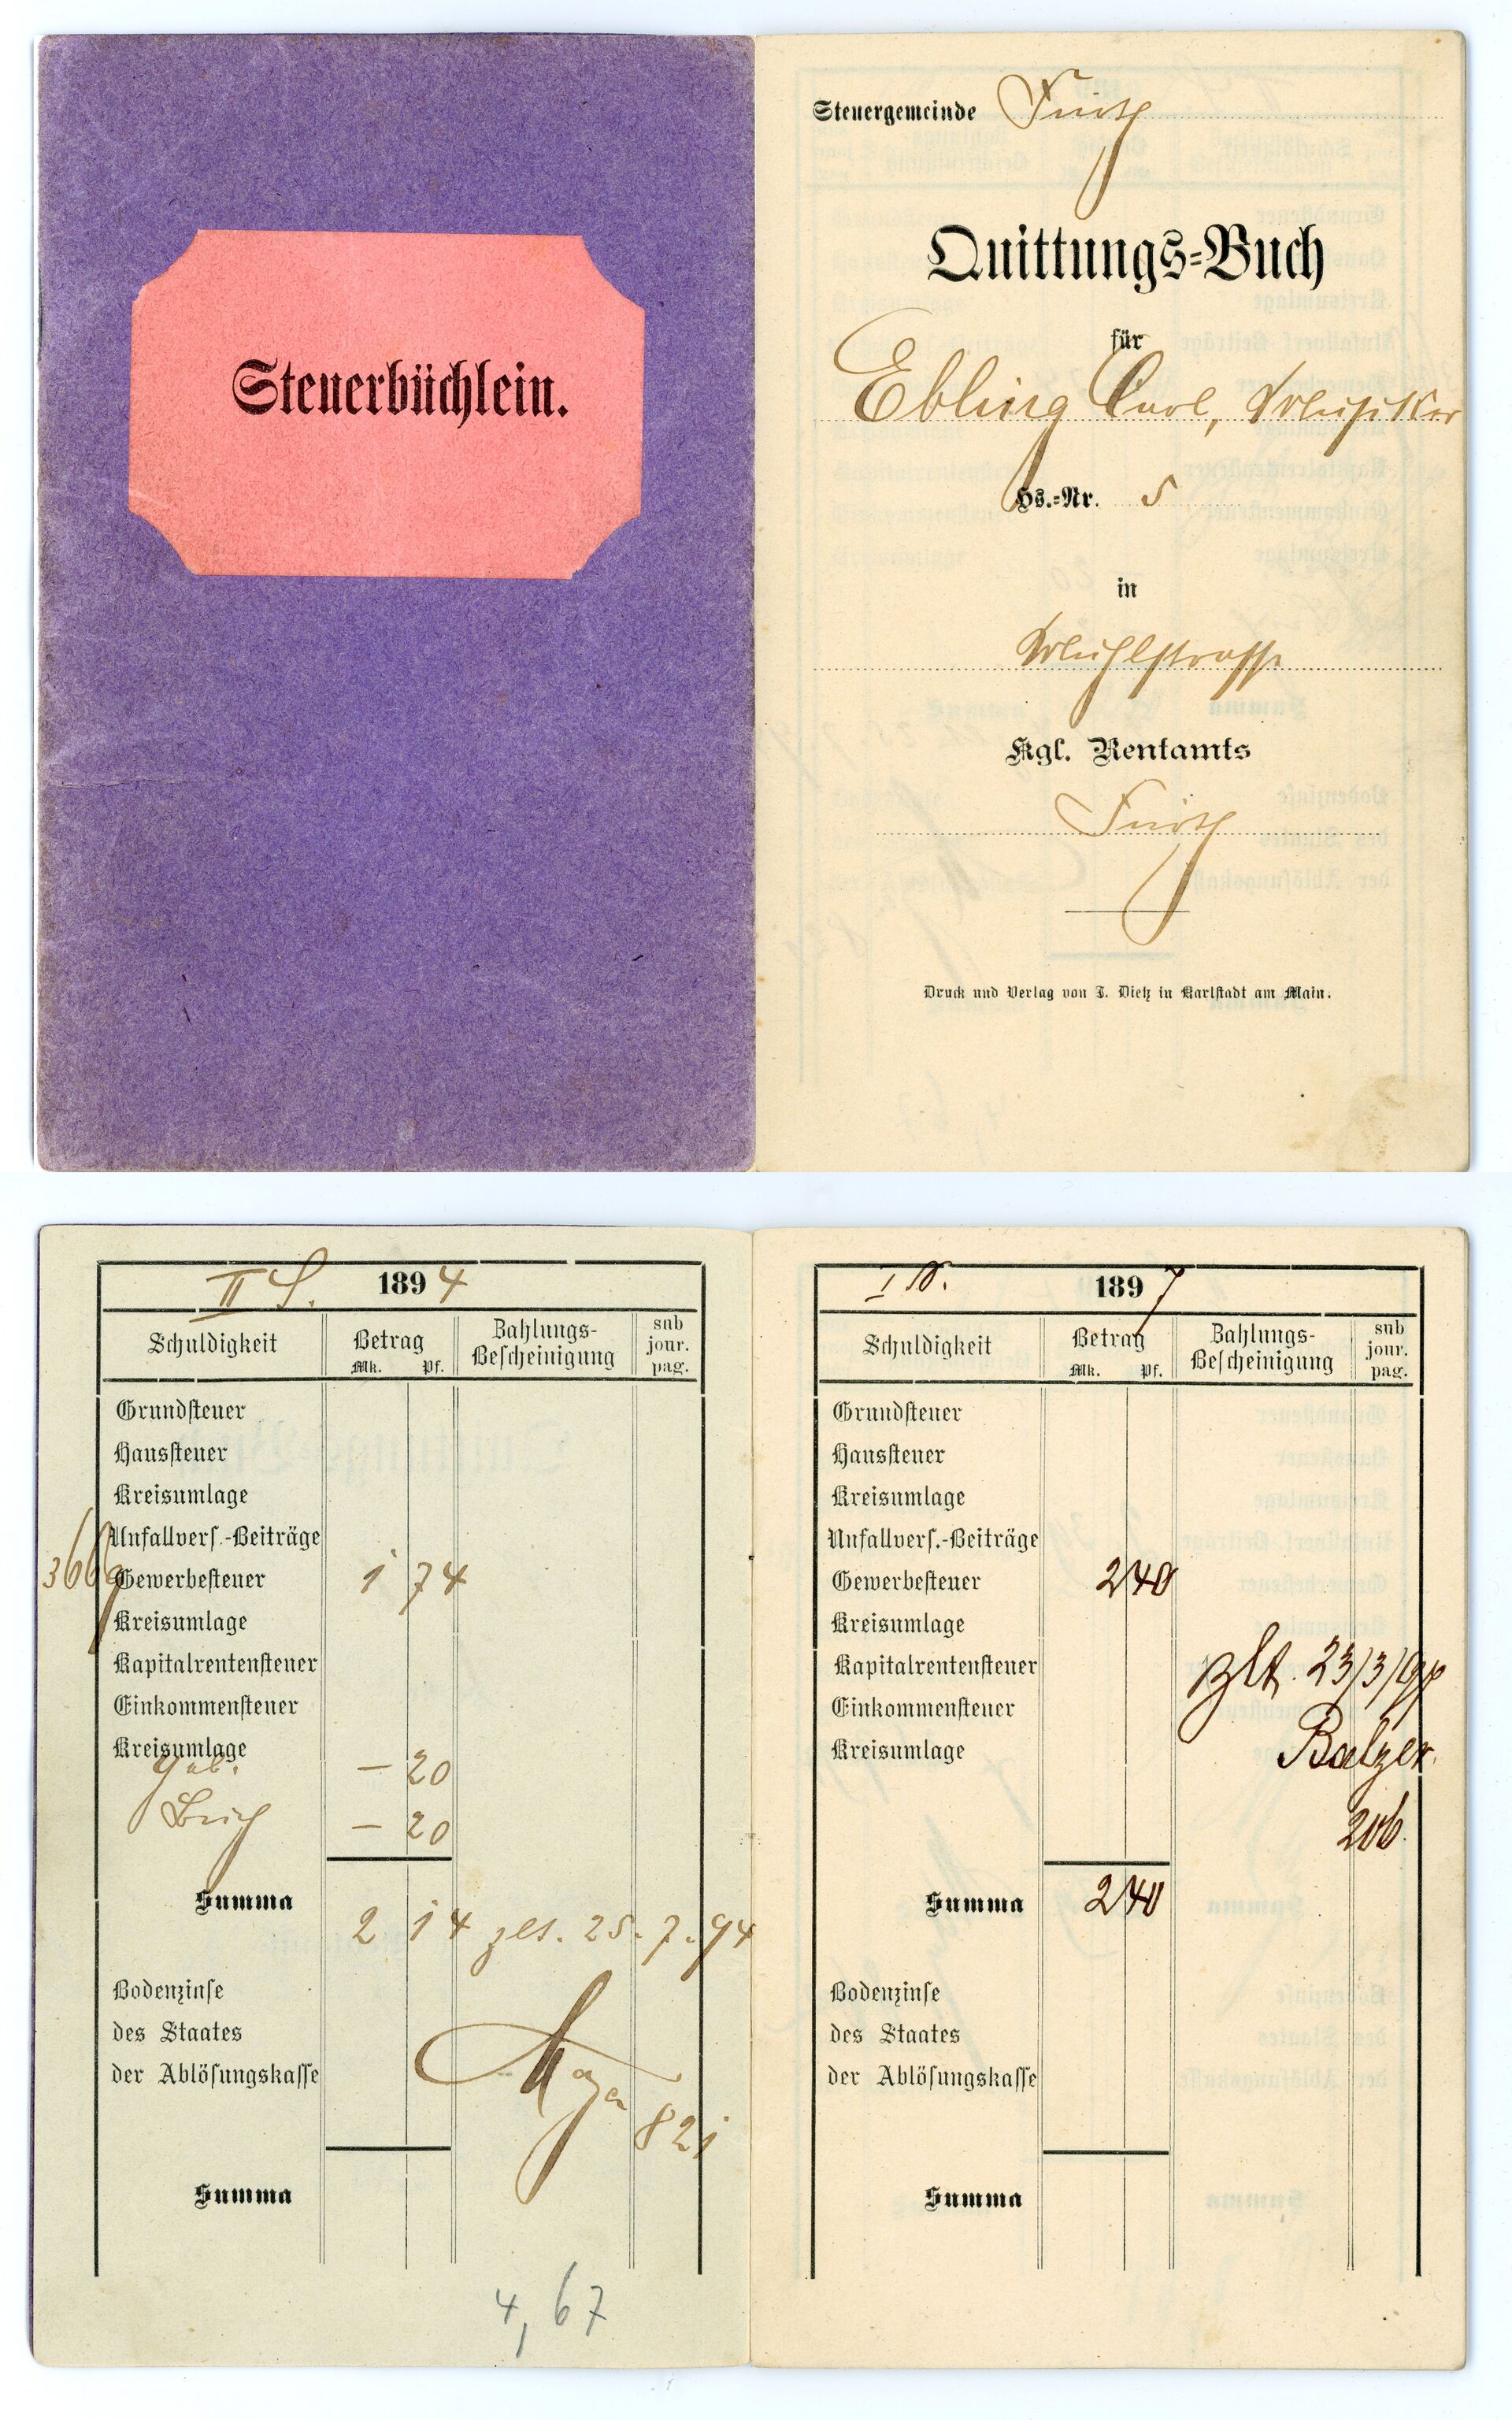 Steuerbüchlein.
Steuergemeinde Fürth
Quittungs=Buch
für
Ebling Carl, Musiker
Hs.=Nr. 5
in
Mühlstrasse
Kgl. Rentamts
Fürth
Druck und Verlag von J. Dietz in Karlstadt am Main.
II S. 1894
Schuldigkeit Betrag Zahlungs-Bescheinigung sub jour. pag.
Mk. Pf.
Grundsteuer
Haussteuer
Kreisumlage
Unfallvers.-Beiträge
Gewerbesteuer 1 74
Kreisumlage
Kapitalrentensteuer
Einkommensteuer
Kreisumlage
Geb. — 20
Buch — 20
Summa 2 14 25. 7. 94
Bodenzinse
des Staates
der Ablösungskasse
821
Summa
4,67
1897
Schuldigkeit Betrag Zahlungs-Bescheinigung sub jour. pag.
Mk. Pf.
Grundsteuer
Haussteuer
Kreisumlage
Unfallvers.-Beiträge
Gewerbesteuer 2 40
Kreisumlage
Kapitalrentensteuer 23/3/97
Einkommensteuer
Kreisumlage Balzer.
206.
Summa 2 40
Bodenzinse
des Staates
der Ablösungskasse
Summa